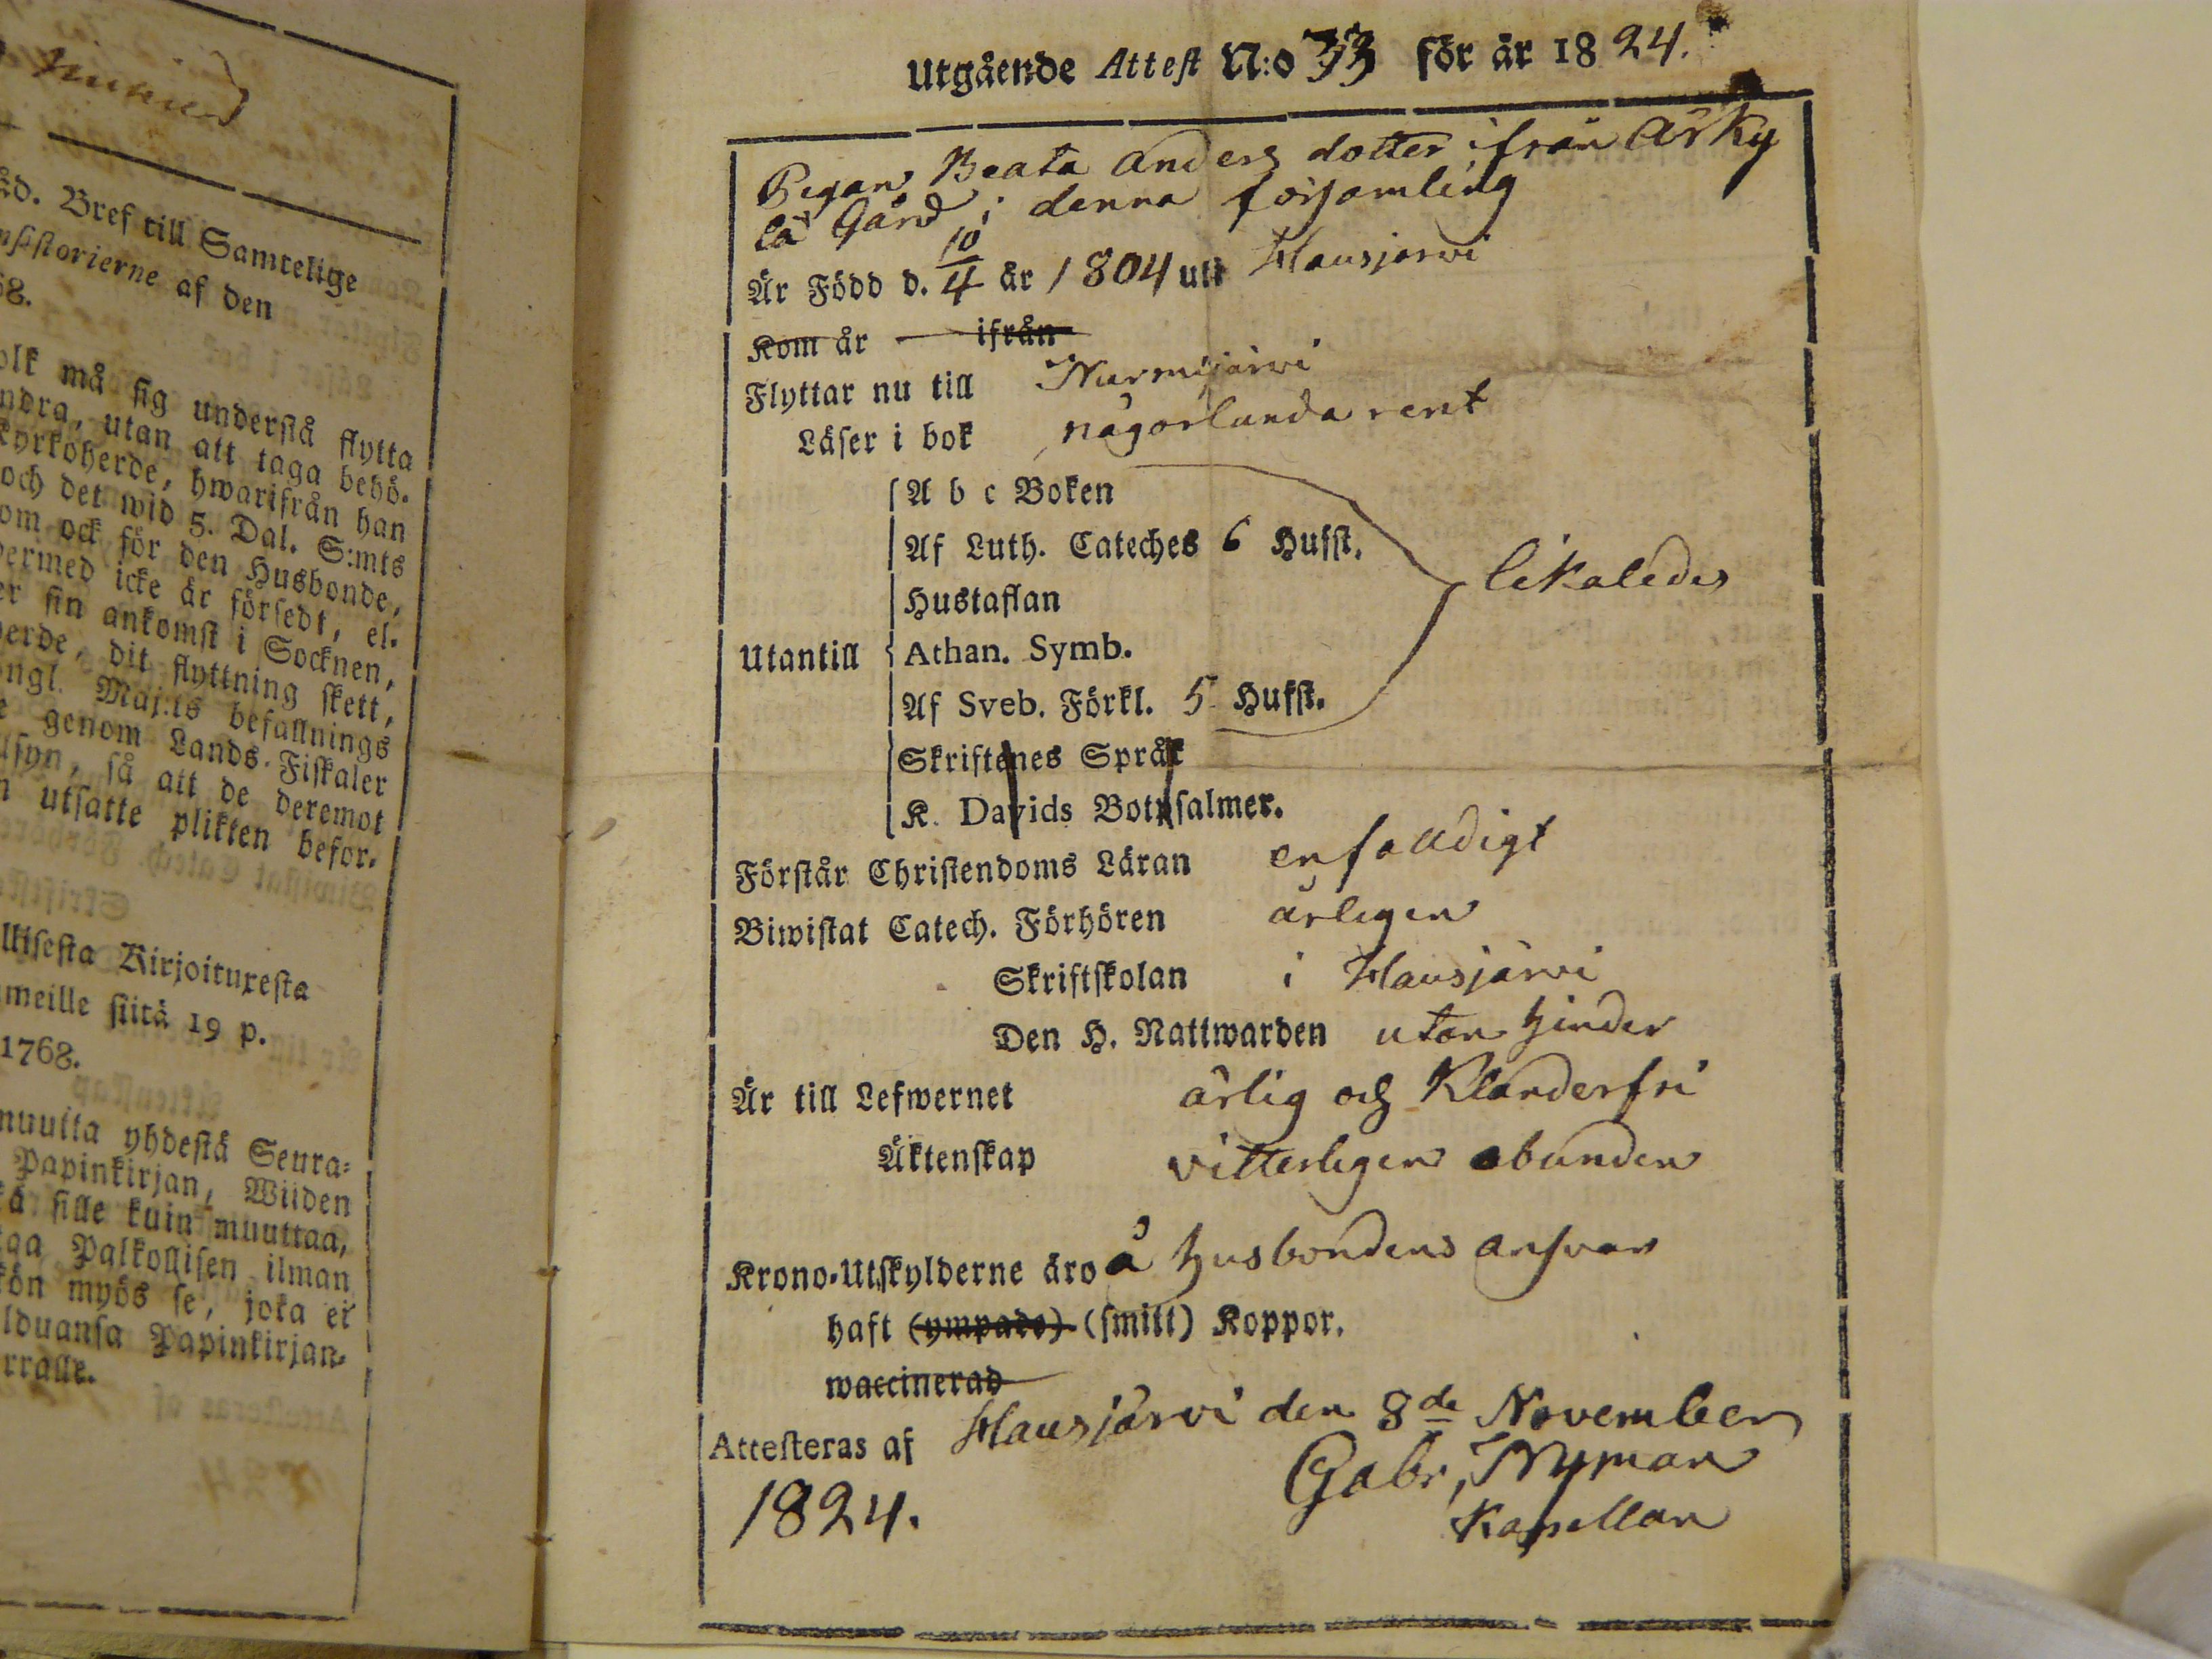 åd. Bref till Samtelige
nsistorierne af den
68.
olk må sig understå flytta
ndra, utan att taga behö-
kyrkoherde, hwarifrån han
och det wid 5. Dal. S:mts
om ock för den Husbonde,
dermed icke är försedt, el-
er sin ankomst i Socknen,
herde, dit flyttning skett,
ongl. Maj:ts befallnings
e genom Lands-Fiskaler
llsyn, så att de deremot
n utsatte plikten befor-
llisesta Kirjoituxesta
meille siitä 19 p.
1768.
muutta yhdestä Seura-
Papinkirjan, Wiiden
kä sille kuin muuttaa,
taa Palkollisen ilman
kön myös se, joka ei
lduansa Papinkirjan-
rralle.
Utgående Attest N:o 33 för år 1824.
Pigan Beata Anders dotter ifrån Ärky
lä Gård i denna församling
Är Född d. 10/4 år 1804 uti Hausjärvi
Kom år ifrån
Flyttar nu till Nurmijärvi
Läser i bok någorlunda rent
A b c Boken
Af Luth. Cateches 6 Hufst.
Hustaflan
likaledes
Utantill Athan. Symb.
Af Sveb. Förkl. 5 Hufst.
Skriftenes Språk
K. Davids Botpsalmer.
Förstår Christendoms Läran enfalldigt
Biwistat Catech. Förhören årligen
Skriftskolan i Hausjärvi
Den H. Nattwarden utan hinder
Är till Lefwernet ärlig och Klanderfri
Äktenskap vitterligen obunden
Krono-Utskylderne äro å husbondens ansvar
haft (ympade) (smitt) Koppor.
waccinerad
Attesteras af Hausjärvi den 8de November
1824. Gabr. Nyman
Kapellan